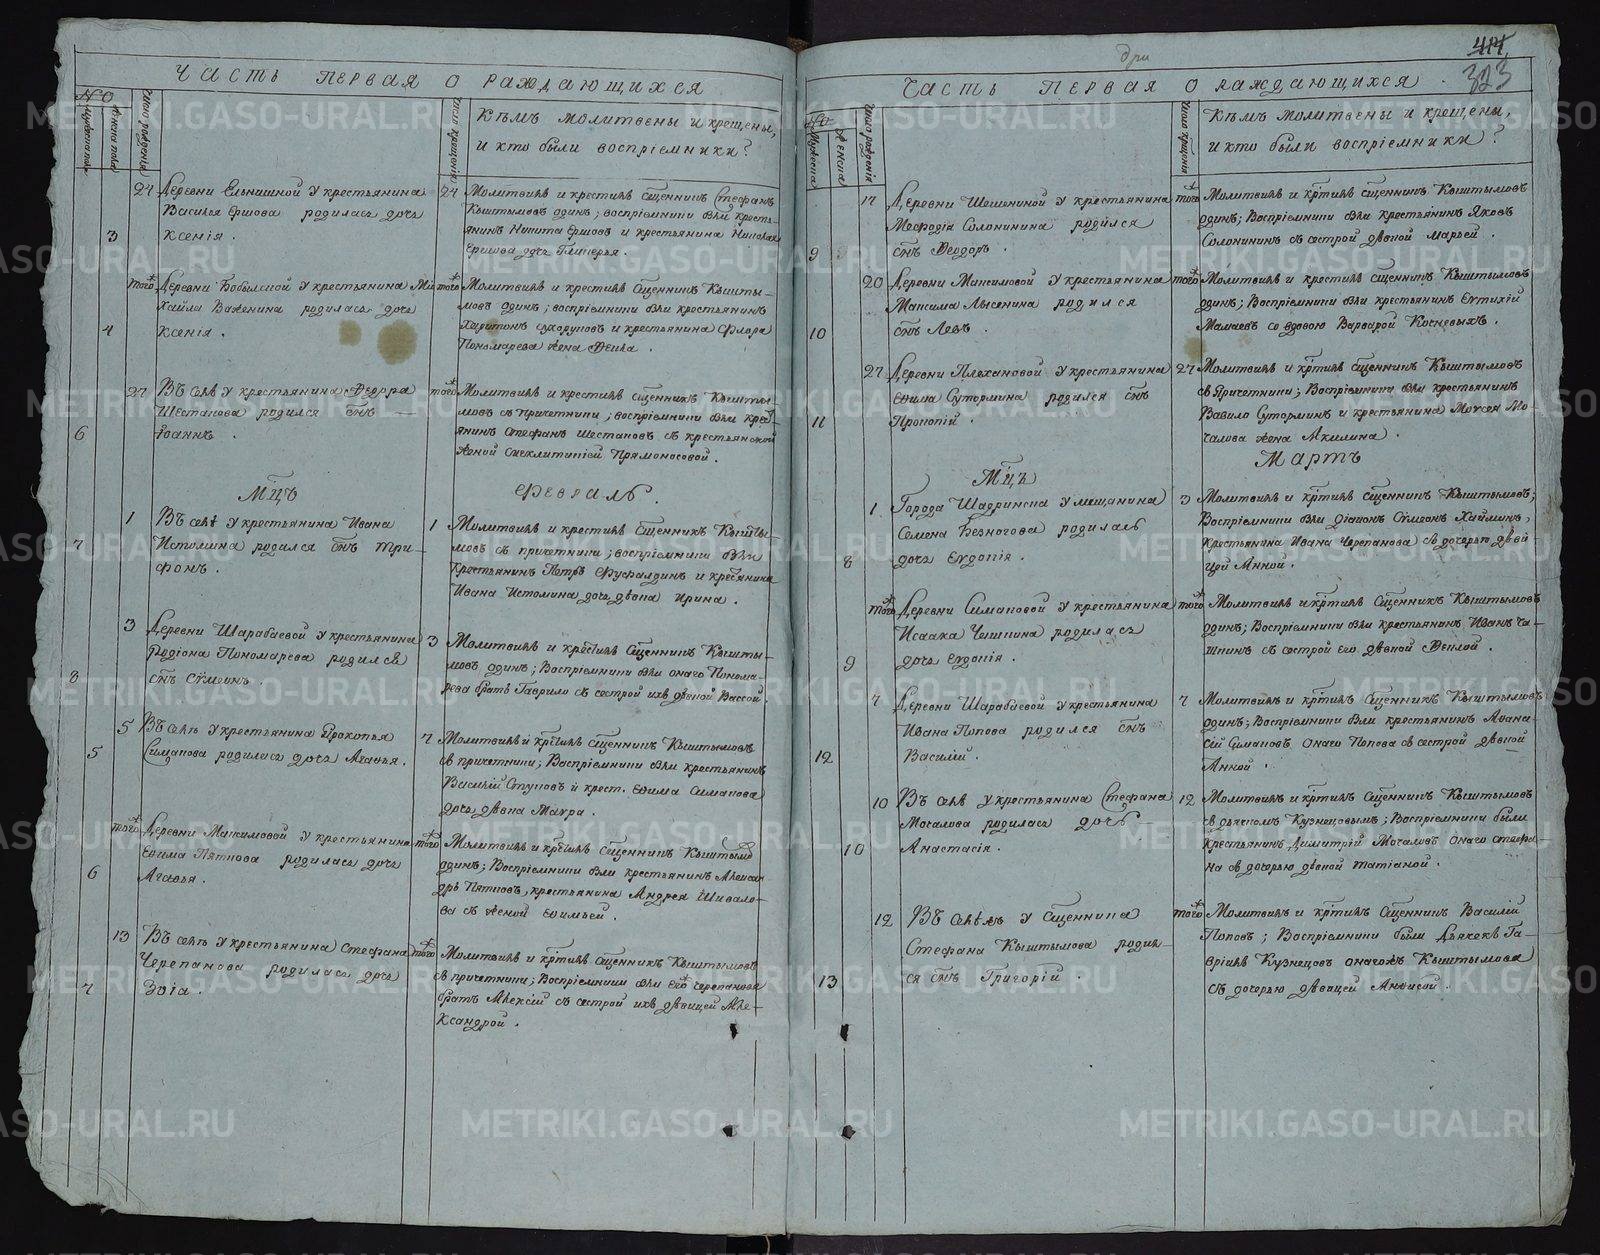 Часть первая о раждающихся
№
Мужеска пола
Женска пола
Число рождения
Число крещения
Кѣмъ молитвены и крещены,
и кто были воспріемники?
3
24
Деревни Ельнишной у крестьянина
Василья Ершова родилась дочь
Ксенія.
24
Молитвилъ и крестилъ сщенникъ Стефанъ
Кыштымовъ одинъ; воспріемники были кресть-
янинъ Никита Ершовъ и крестьянина Николая
Ершова дочь Гликерья.
4
того ж
Деревни Бобыльской у крестьянина Ми-
хайла Важенина родилась дочь
Ксенія.
того ж
Молитвилъ и крестилъ сщенникъ Кышты-
мовъ одинъ; воспріемники были крестьянинъ
Харитонъ Сухоруковъ и крестьянина Флора
Пономарева жена Фекла.
6
27
Въ селѣ у крестьянина Ѳеодора
Шестакова родился сынъ
Іоаннъ.
того ж
Молитвилъ и крестилъ сщенникъ Кышты-
мовъ съ причетники; воспріемники были крест-
янинъ Стефанъ Шестаковъ съ крестьянской
женой Синклитикіей Прямоносовой.
Мцъ Февраль.
7
1
Въ селѣ у крестьянина Ивана
Истомина родился снъ Три-
фонъ.
1
Молитвилъ и крестилъ сщенникъ Кышты-
мовъ съ причетники; воспріемники были
крестьянинъ Петръ и крестьянина
Ивана Истомина дочь двка Ирина.
8
3
Деревни Шарабаевой у крестьянина
Родіона Пономарева родился
снъ Сѷмеонъ.
3
Молитвилъ и крестилъ сщенникъ Кышты-
мовъ одинъ; Воспріемники были онаго Понома-
рева братъ Гаврило съ сестрой ихъ двкой Вассой.
5
5
Въ селѣ у крестьянина Прокопья
Симакова родилась дочь Агафья.
7
Молитвилъ и крестилъ сщенникъ Кыштымовъ
съ причетники; Воспріемники были крестьянинъ
Василій Ступовъ и крест. Ефима Симакова
дочь двка Мавра.
6
того ж
Деревни Максимовой у крестьянина
Ефима Пяткова родилась дочь
Агафья.
того ж
Молитвилъ и крестилъ сщенникъ Кыштымовъ
одинъ; Воспріемники были крестьянинъ Алексан-
дръ Пятковъ, крестьянина Андрея Шивало-
ва съ женой Ефимьей.
7
13
Въ селѣ у крестьянина Стефана
Черепанова родилась дочь
Зоіа.
того ж
Молитвилъ и кртилъ сщенникъ Кыштымовъ
съ причетники; Воспріемники были его Черепанова
братъ Алексій съ сестрой ихъ двицей Але-
ксандрой.
414
323
Часть первая о раждающихся
№
Мужеска
Женска
Число рожденія
Число крщенія
Кѣмъ молитвены и крещены,
и кто были воспріемники?
9
17
Деревни Шешениной у крестьянина
Меѳодія Солонинина родился
снъ Ѳеодоръ.
того ж
Молитвилъ и кртилъ сщенникъ Кыштымовъ
одинъ; Воспріемники были крестьянинъ Яковъ
Солонининъ съ сестрой двкой Марьей.
10
20
Деревни Максимовой у крестьянина
Максима Лысенина родился
снъ Левъ.
того ж
Молитвилъ и крестилъ сщенникъ Кыштымовъ
одинъ; Воспріемники были крестьянинъ Евтихій
Мамаевъ со вдовою Варварой Косневыхъ.
11
27
Деревни Плехановой у крестьянина
Ефима Сутормина родился снъ
Прокопій.
27
Молитвилъ и кртилъ сщенникъ Кыштымовъ
съ Причетники; Воспріемники были крестьянинъ
Вавило Суторминъ и крестьянина Моѵсея Мо-
чалова жена Акилина.
Мцъ Мартъ
8
1
Города Шадринска у мещанина
Семена Безногова родилась
дочь Евдокія.
3
Молитвилъ и кртилъ сщенникъ Кыштымовъ;
Воспріемники были діаконъ Сѷмеонъ Хайминъ,
крестьянина Ивана Черепанова съ дочерью дви
цей Анной.
9
того ж
Деревни Симаковой у крестьянина
Исаака Чашкина родилась
дочь Евдокія.
того ж
Молитвилъ и кртилъ сщенникъ Кыштымовъ
одинъ; Воспріемники были крестьянинъ Иванъ Ча-
шкинъ съ сестрой его двкой Ѳеклой.
12
7
Деревни Шарабаевой у крестьянина
Ивана Попова родился снъ
Василій.
7
Молитвилъ и кртилъ сщенникъ Кыштымовъ
одинъ; Воспріемники были крестьянинъ Афана-
сій Симаковъ онаго Попова съ сестрой двкой
Анной.
10
10
Въ селѣ у крестьянина Стефана
Мочалова родилась дочь
Анастасія.
12
Молитвилъ и кртилъ сщенникъ Кыштымовъ
съ дьячкомъ Кузнецовымъ; Воспріемники были
крестьянинъ Димитрій Мочаловъ онаго Стефа-
на съ дочерью двкой Татіаной.
13
12
Въ селѣ у сщенника
Стефана Кыштымова родил-
ся снъ Григорій.
того ж
Молитвилъ и кртилъ сщенникъ Василій
Поповъ; Воспріемники были дьячекъ Га-
вріилъ Кузнецовъ онаго Кыштымова
съ дочерью двицей Анфисой.
METRIKI.GASO-URAL.RU